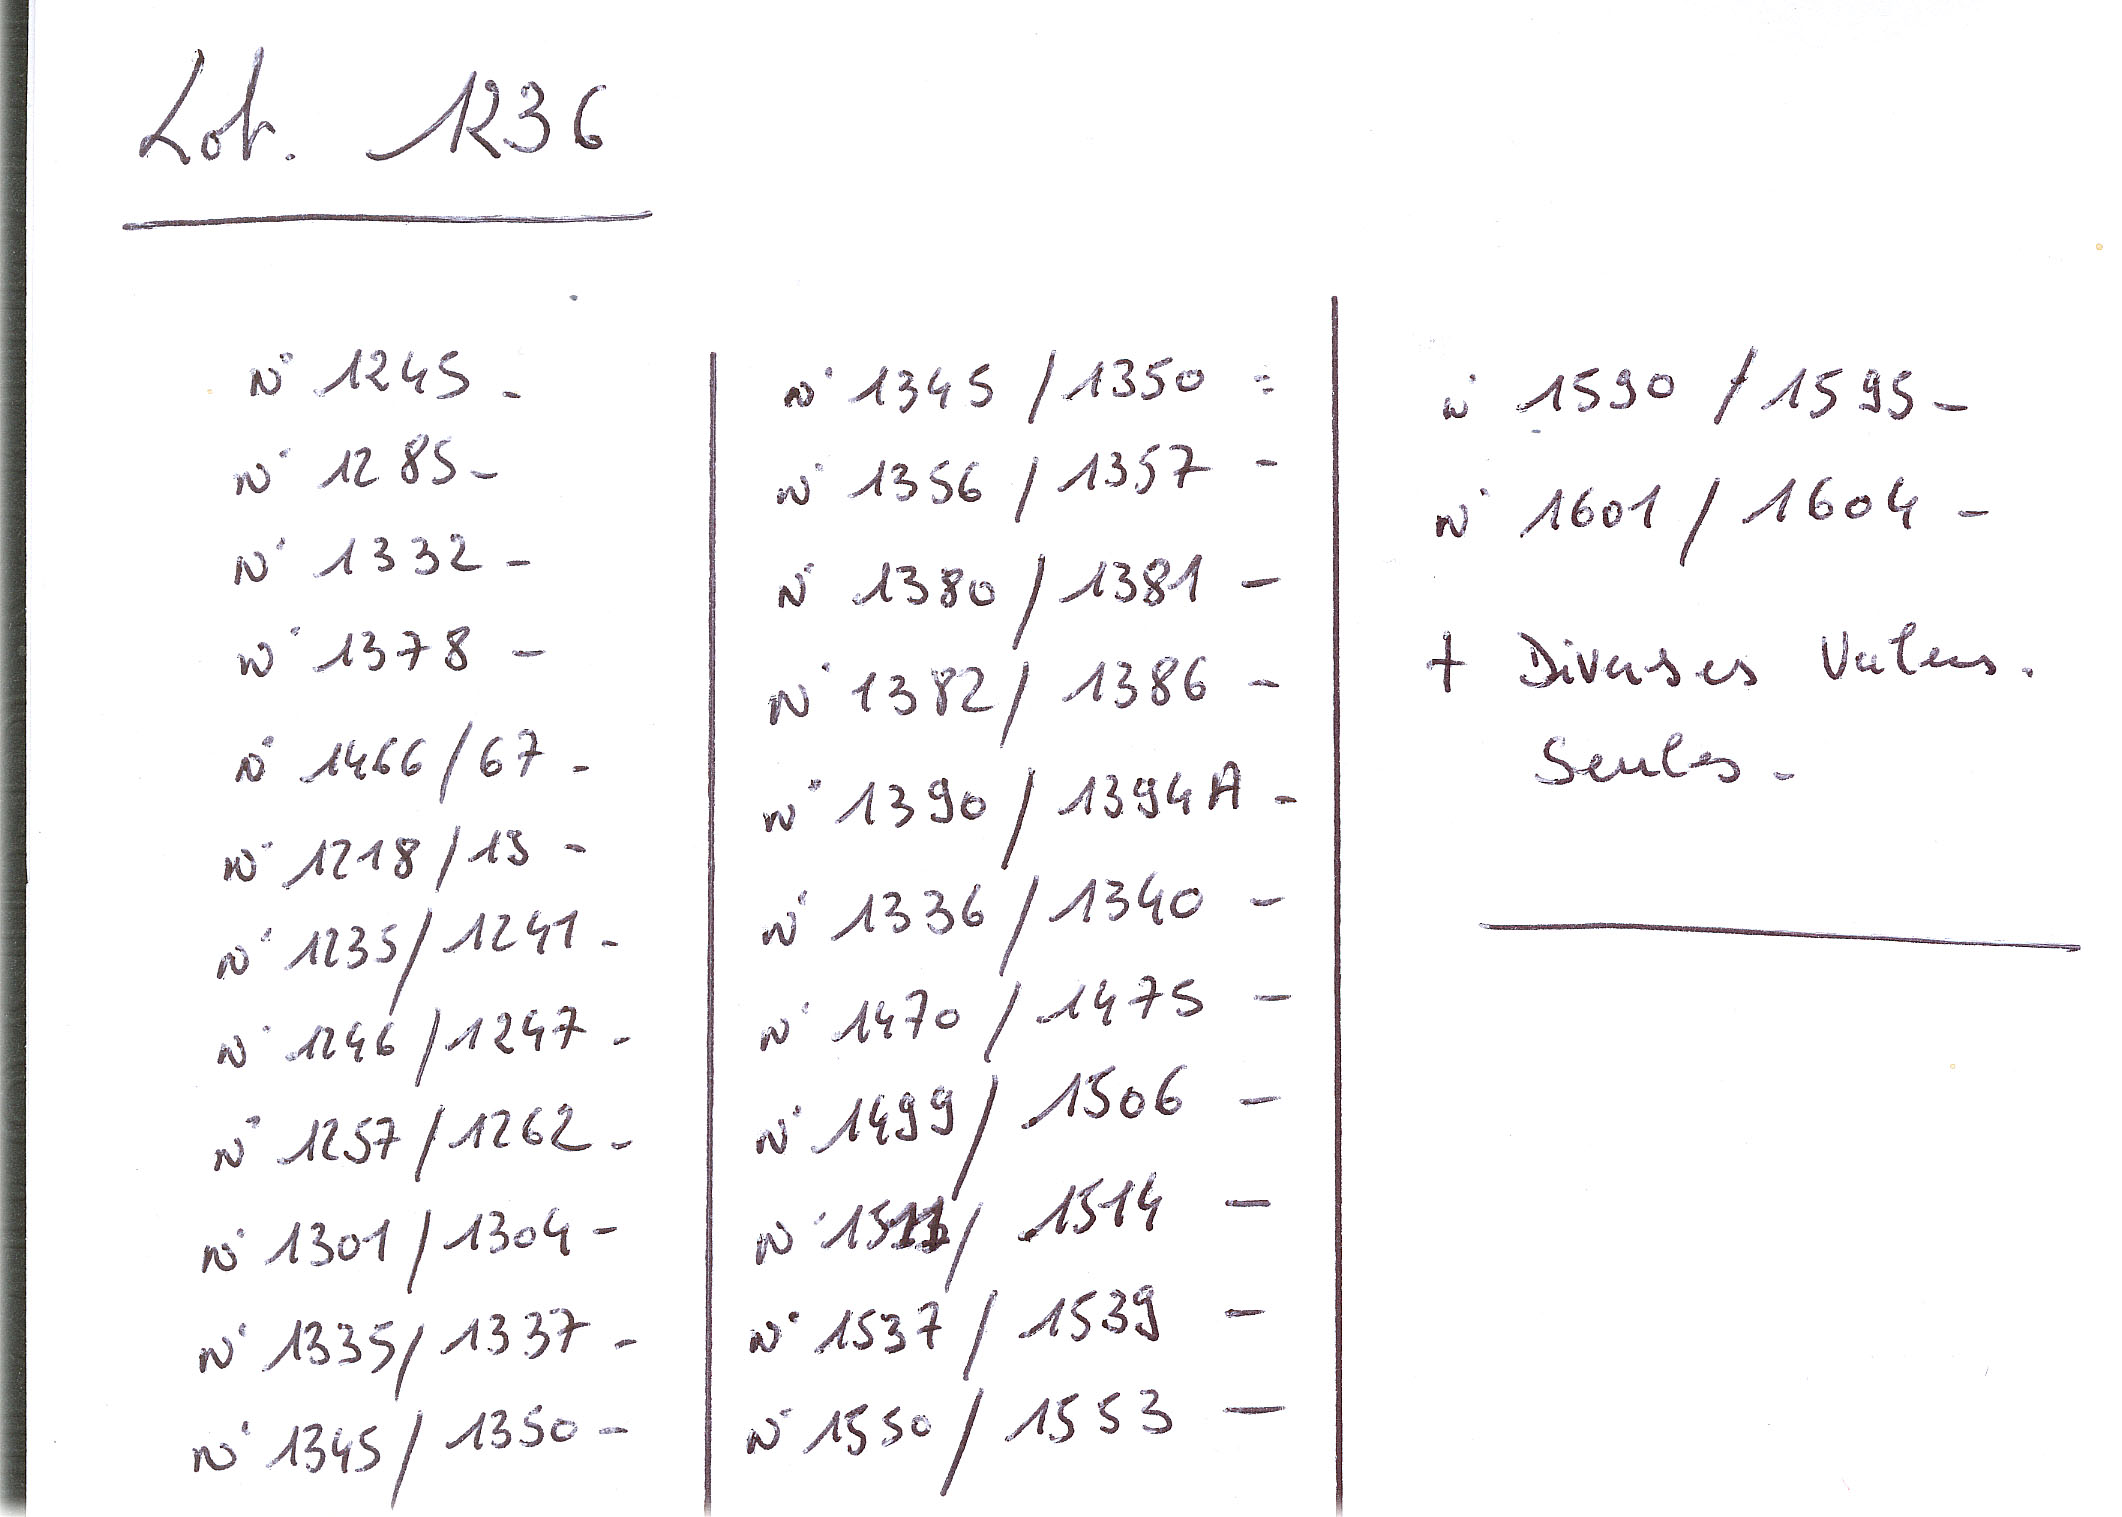 Lot. 1236
N° 1245 -
N° 1285 -
N° 1332 -
N° 1378 -
N° 1466/67 -
N° 1218/19 -
N° 1235/1241 -
N° 1246/1247 -
N° 1257/1262 -
N° 1301/1304 -
N° 1335/1337 -
N° 1345/1350 -
N° 1345/1350 =
N° 1356/1357 -
N° 1380/1381 -
N° 1382/1386 -
N° 1390/1394A -
N° 1336/1340 -
N° 1470/1475 -
N° 1499/1506 -
N° 1511/1514 -
N° 1537/1539 -
N° 1550/1553 -
N° 1590/1595 -
N° 1601/1604 -
+ Diverses Valeurs.
Seules -